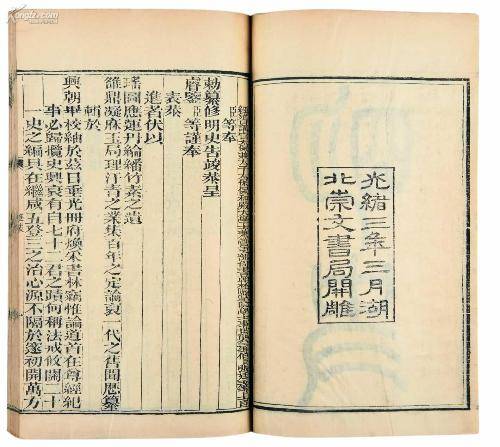 光緒三年三月湖
北崇文書局開雕
臣等奉
勅纂修明史告竣恭呈
睿鑒臣等謹奉
表恭
進者伏以
瑤圖應運丹綸繙竹素之遺
雒鼎凝庥玉局理汗青之業集百年之定論裒一代之舊聞歷纂
輯於
興朝畢校紬於茲日垂光冊府煥采書林竊惟論道首在尊經紀
事必歸攬史興衰有自七十二君之蹟何稱法戒攸關二十
一史之編具在繼咸五登三之治心源不隔於邃初開萬方